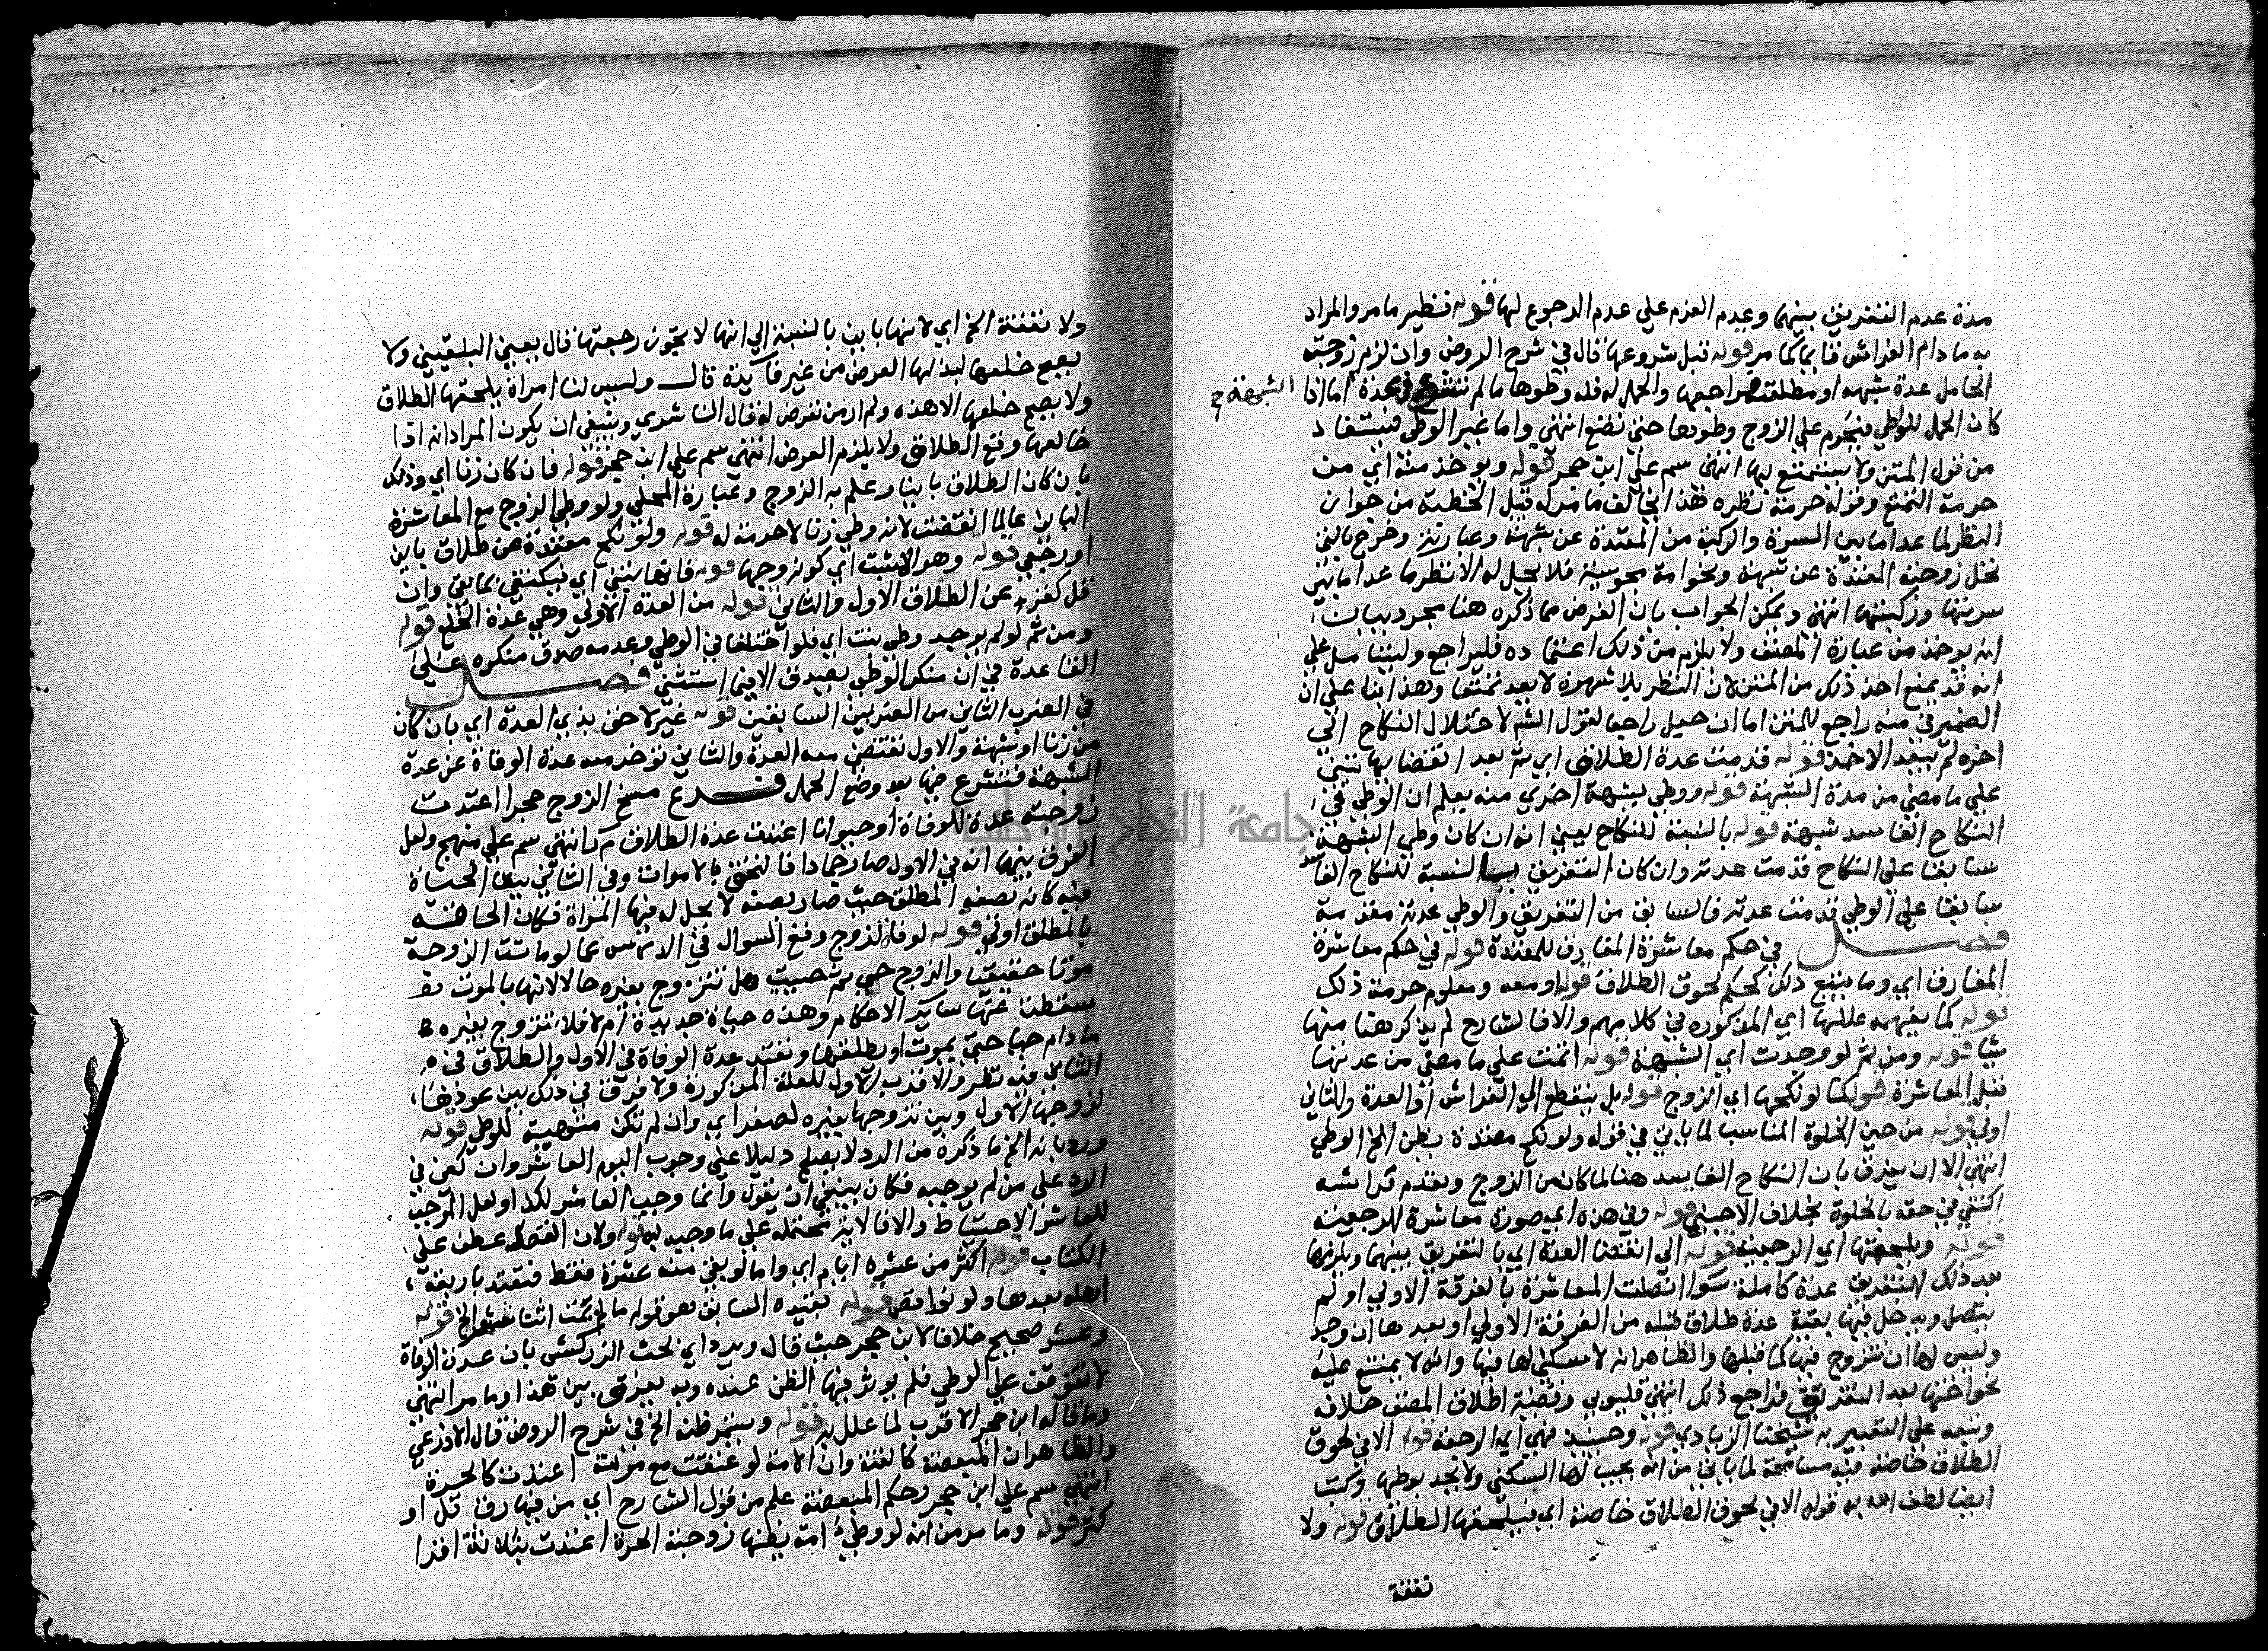 مدة عدم التفريق بينهما وعدم العزم على عدم الرجوع لها قوله نظير ما مر والمراد
به ما دام الفراش قايما كما مر قوله قبل شروعها قال في شرح الروض وان لزم زوجته
الحامل عدة شبهة او مطلقته فراجعها والحمل له فله وطوها ما لم تشرع في عدة اما اذا
الشبهة ح
كان الحمل للوطي فيحرم على الزوج وطوها حتى تضع انتهى واما غير الوطي فيستفاد
من قول المتن ولا يستمتع بها انتهى سم على ابن حجر قوله ويوخذ منه اي من
حرمة التمتع وقوله حرمة نظره هذا يخالف ما مر له قبيل الخطبة من جواز
النظر لما عدا ما بين السرة والركبة من المعتدة عن شبهة وعبارته وخرج بالتي
تحل زوجته المعتدة عن شبهة ونحو امة مجوسية فلا يحل له الا نظر ما عدا ما بين
سرتها وركبتها انتهى ويمكن الجواب بان الغرض مما ذكره هنا مجرد بيان
انه يوخذ من عبارة المصنف ولا يلزم من ذلك اعتماده فليراجع وليتامل على
انه قد يمنع اخذ ذلك من المتن لان النظر بلا شهوة لا يعد تمتعا وهذا بنا على ان
الضمير في منه راجع للمتن اما ان جعل راجعا لقول الشم لاختلال النكاح الى
اخره لم يبعد الاخذ قوله قدمت عدة الطلاق اي ثم بعد انقضايها تبني
على ما مضى من مدة الشبهة قوله ووطي بشبهة اخرى منه يعلم ان الوطي في
النكاح الفاسد شبهة قوله بالنسبة للنكاح يعني انه ان كان وطي الشبهة
سابقا على النكاح قدمت عدته وان كان التفريق بالنسبة للنكاح الفاسد
سابقا على الوطي قدمت عدته فالسابق من التفريق والوطي عدته مقدمة
فصل في حكم معاشرة المفارق للمعتدة قوله في حكم معاشرة
المفارق اي وما يتبع ذلك كحكم لحوق الطلاق قوله اومعه ومعلوم حرمة ذلك
قوله كما يفهمه عللها اي المذكورة في كلامهم والا فالشارح لم يذكر هنا منها
شيا قوله ومن ثم لو وجدت اي الشبهة قوله اتمت على ما مضى من عدتها
قبل المعاشرة قوله كما لو نكحها اي الزوج قوله بل ينقطع اي الفراش او العدة والثاني
اولى قوله من حين الخلوة المناسب لما ياتي في قوله ولو نكح معتدة بظن الخ الوطي
انتهى الا ان يفرق بان النكاح الفاسد هنا لما كان من الزوج وتقدم فراشه
اكتفي في حقه بالخلوة بخلاف الاجنبي قوله وفي هذه اي صورة معاشرة الرجعية
قوله ويلحقها اي الرجعية قوله الى انقضا العدة اي بالتفريق بينهما ويلزمها
بعد ذلك التفريق عدة كاملة سوا اتصلت المعاشرة بالفرقة الاولى او لم
يتصل ويدخل فيها بقية عدة طلاق قبله من الفرقة الاولى او بعدها ان وجد
وليس لها ان تتزوج فيها كما قبلها والظاهر انه لا سكنى لها فيها وانه لا يمتنع عليه
نحو اختها بعد التفريق فراجع ذلك انتهى قليوبي وقضية اطلاق المصنف خلافه
وتبعه على التعبير به شيخنا الزيادي قوله وحينيذ فهي اي الرجعة قوله الا في لحوق
الطلاق خاصة فيه مسامحة لما ياتي من انه يجب لها السكنى ولا يحد بوطيها وكتب
ايضا لطف الله به قوله الا في لحوق الطلاق خاصة اي فيلحقها الطلاق قوله ولا
نفقة
ولا نفقة الخ اي لانها باين بالنسبة الى انها لا تجوز رجعتها قال بعضي البلقيني ولا
يصح خلعها لبذلها العوض من غير فايدة قال وليس لنا امراة يلحقها الطلاق
ولا يصح خلعها الا هذه ولم ار من تعرض له قال الناشري وينبغي ان يكون المراد انه اذا
خالعها وقع الطلاق ولا يلزم العوض انتهى سم على ابن حجر قوله فان كان زنا اي وذلك
بان كان الطلاق باينا وعلم به الزوج وعبارة المحلي ولو وطي الزوج مع المعاشرة
الباين عالما انقضت لانه وطي زنا لا حرمة له قوله ولو نكح معتدة من طلاق باين
او رجعي قوله وهو الاثبت اي كونه زوجها قوله فانها تبني اي فيكتفى بما بقي وان
قل كقرء عن الطلاق الاول والثاني قوله من العدة الاولى وهي عدة الخلع قوله
ومن ثم لو لم يوجد وطي بنت اي فلو اختلفا في الوطي وعدمه صدق منكره على
القاعدة في ان منكر الوطي يصدق الا فيما استثني فصل
في الضرب الثاني من الضربين السابقين قوله غير لاحق بذي العدة اي بان كان
من زنا او شبهة والاول تنقضي معه العدة والثاني توخر معه عدة الوفاة عن عدة
الشبهة فتشرع فيها بعد وضع الحمل فرع مسخ الزوج حجرا اعتدت
زوجته عدة للوفاة او حيوانا اعتدت عدة الطلاق م ر انتهى سم على منهج ولعل
الفرق بينهما انه في الاول صار جمادا فالتحق بالاموات وفي الثاني بقا الحياة
فيه كانه بصفة المطلق حيث صار بصفة لا يحل له فيها المراة فكان الحاقه
بالمطلق اولى قوله لوفاة زوج وقع السوال في الدرس عما لو ماتت الزوجة
موتا حقيقيا والزوج حي ثم حييت هل تتزوج بغيره حالا لانها بالموت قد
سقطت عنها ساير الاحكام وهذه حياة جديدة ام لا فلا تتزوج بغيره
ما دام حيا حتى يموت او يطلقها وتعتد عدة الوفاة في الاول والطلاق في
الثاني فيه نظر والاقرب الاول للعلة المذكورة ولا فرق في ذلك بين عودها
لزوجها الاول وبين تزوجها بغيره لصغر اي وان لم تكن متهيية للوطي قوله
ورد بانه الخ ما ذكره من الرد لا يصلح دليلا على وجوب اليوم العاشر وان كفى في
الرد على من لم يوجبه فكان ينبغي ان يقول وانما وجب العاشر لكذا ولعل الموجب
للعاشر الاحتياط والا فالاية محتملة على ما وجبه به قوله ولان القصد عطف على
الكتاب قوله اكثر من عشرة ايام اي واما لو بقي منه عشرة فقط فتعتد باربعة
اهلة بعدها ولو نواقص قوله بقيده السابق هو قوله ما لم تمت اثنا عشر الخ قوله
وعشر صحيح خلافا لابن حجر حيث قال ويرد اي بحث الزركشي بان عدة الوفاة
لا تتوقف على الوطي فلم يوثر فيها الظن عنده وبه يفرق بين هذا وما مر انتهى
وما قاله ابن حجر الاقرب لما علل به قوله ويستمر ظنه الخ في شرح الروض قال الاذرعي
والظاهر ان المبعضة كالقنة وان الامة لو عتقت مع موته اعتدت كالحرة
انتهى سم على ابن حجر وحكم المبعضة علم من قول الشارح اي من فيها رق قل او
كثر قوله وما مر من انه لو وطي امة يظنها زوجته الحرة اعتدت بثلاثة اقرا